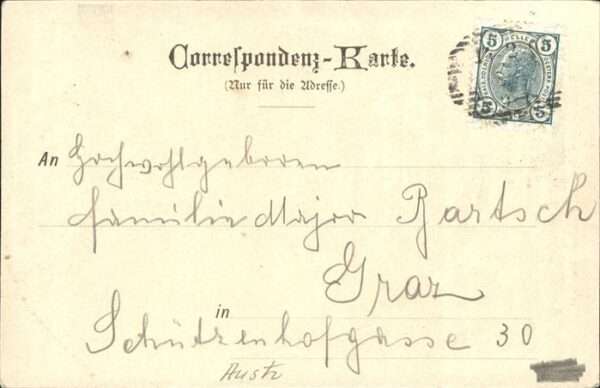 Correspondenz-Karte.
(Nur für die Adresse.)
5 HELLER 5
5 5
An Hochwohlgeboren
Familie Major Bartsch
Graz
in
Schützenhofgasse 30
Austr